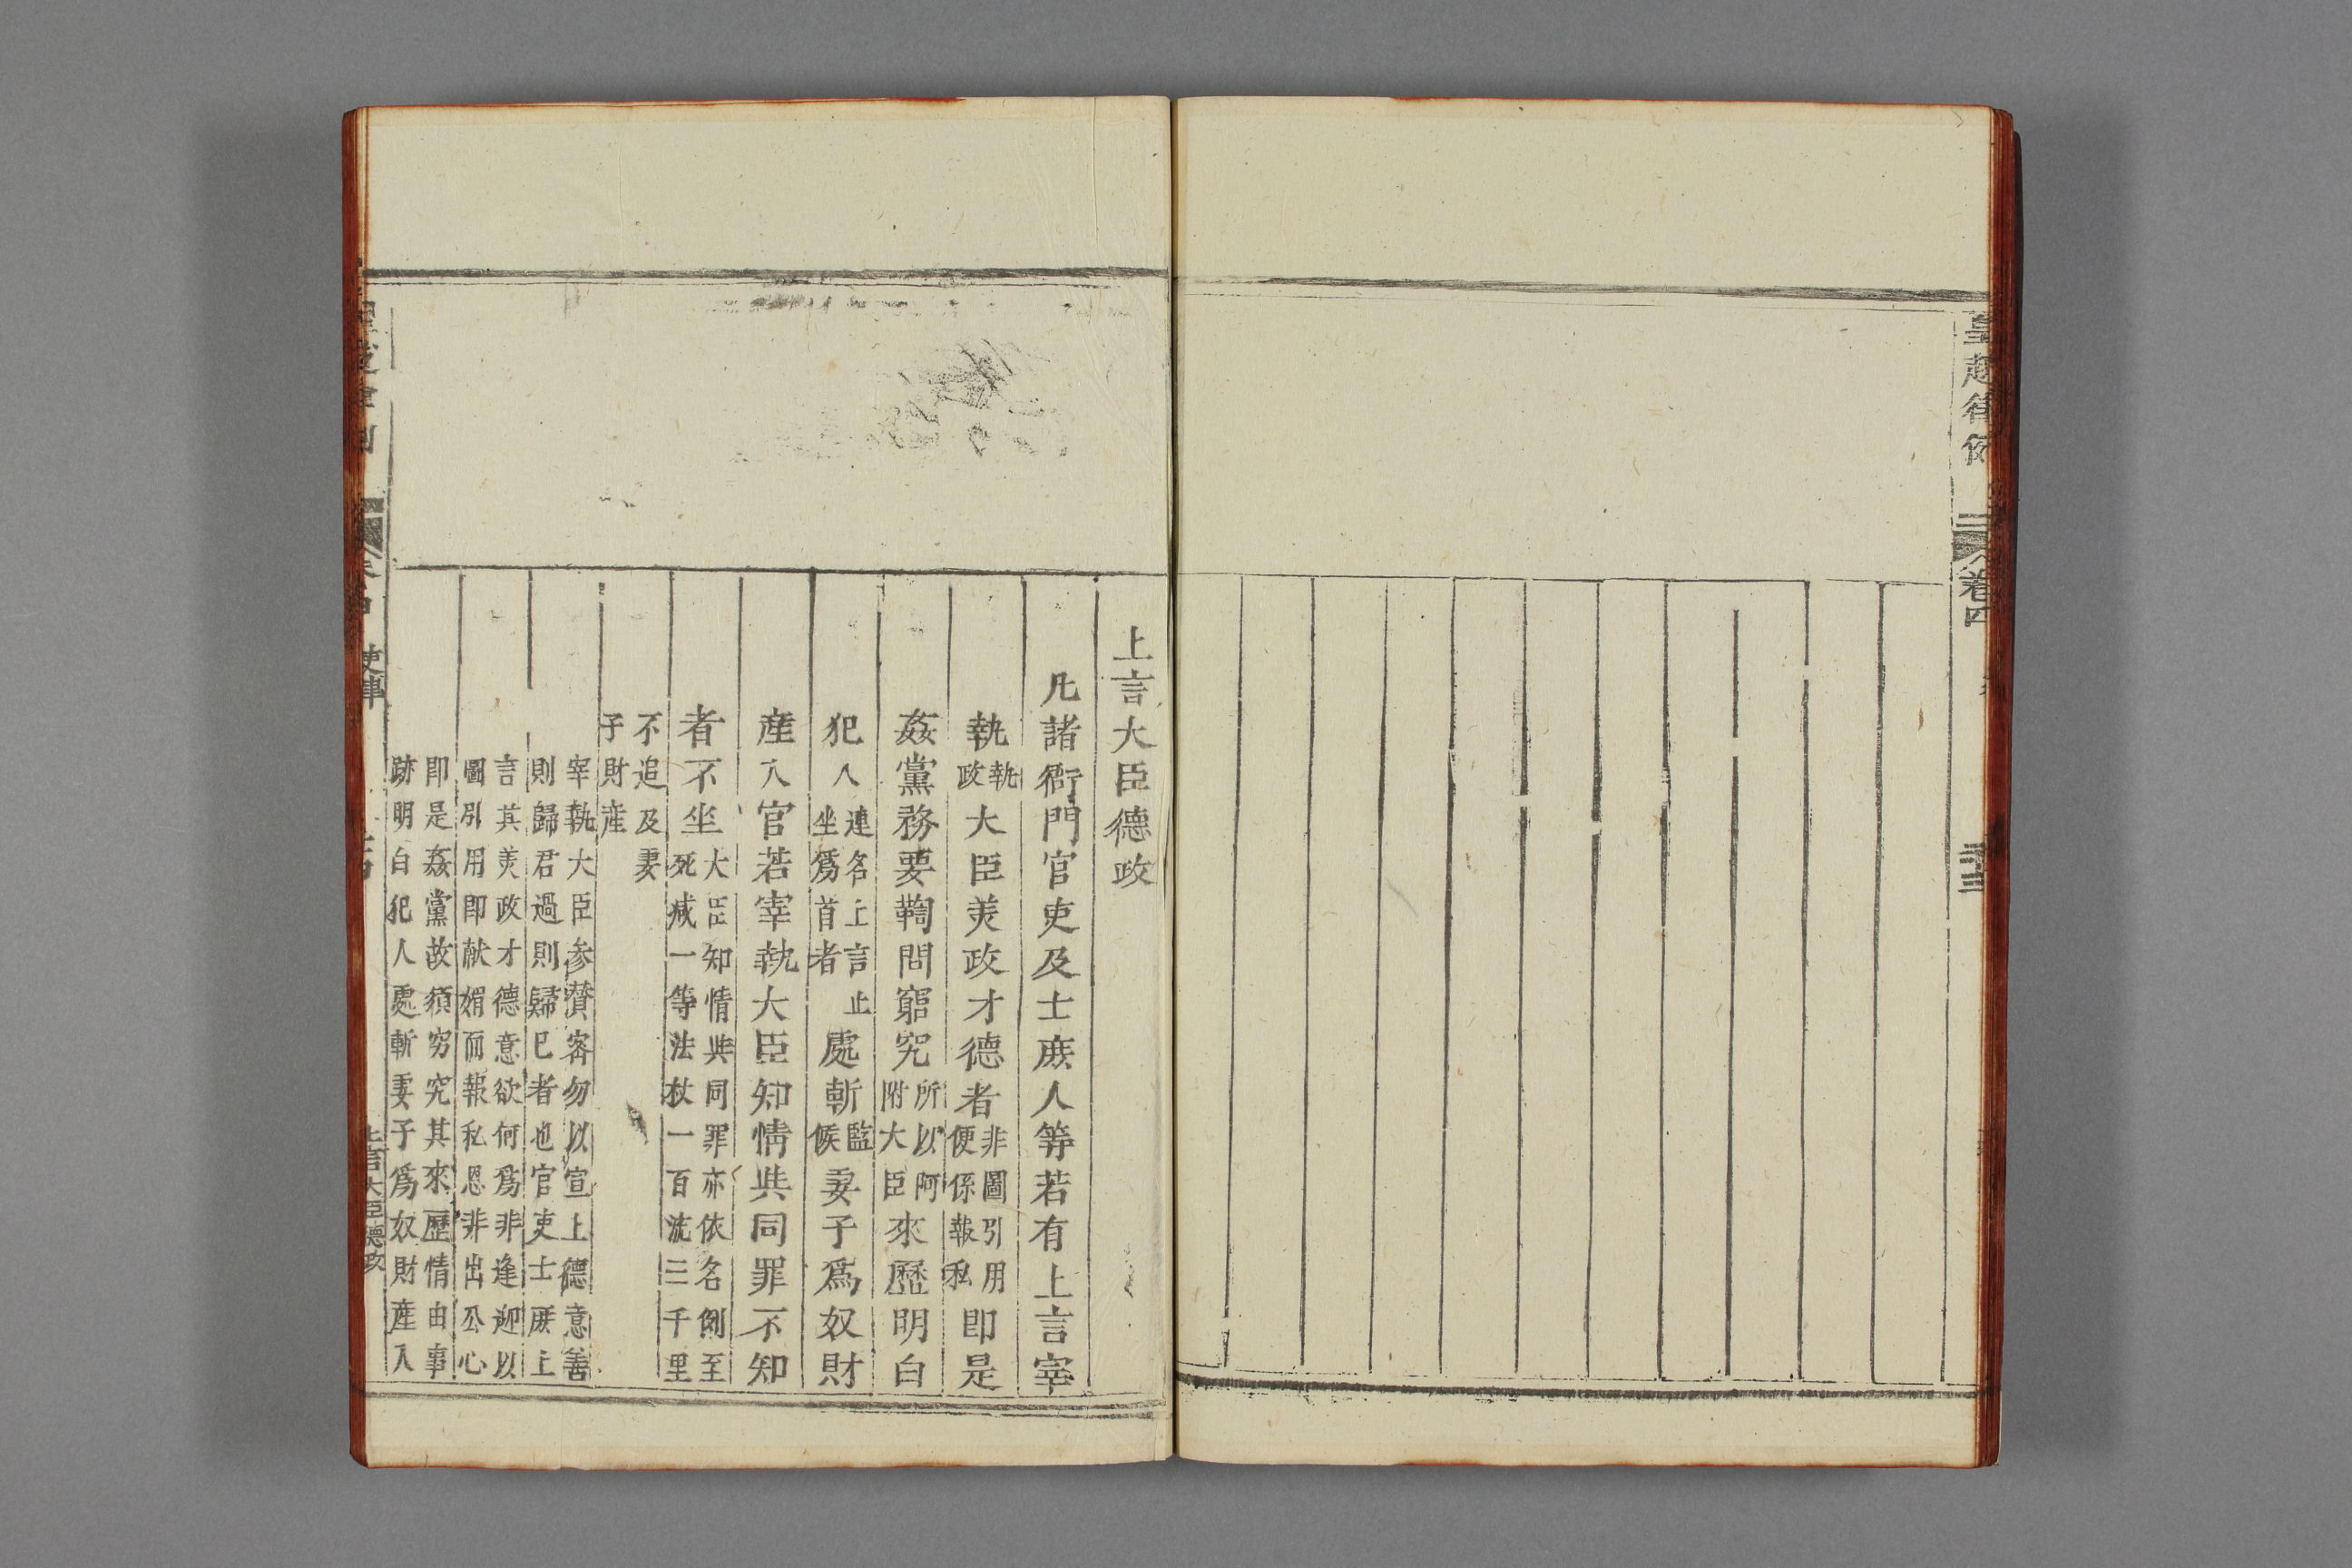 皇越律例
卷四
二十三
上言大臣德政
凡諸衙門官吏及士庶人等若有上言宰
執執政大臣美政才德者非圖引用便係報私即是
姦黨務要鞫問窮究所以阿附大臣來歷明白
犯人連名上言止坐爲首者處斬監候妻子爲奴財
產入官若宰執大臣知情與同罪不知
者不坐大臣知情與同罪亦依名例至死减一等法杖一百流三千里
不追及妻子財產
宰執大臣参賛宻勿以宣上德意善
則歸君過則歸己者也官吏士庶上
言其美政才德意欲何爲非逢迎以
圖引用即献媚而報私恩非出公心
即是姦黨故須穷究其來歷情由事
跡明白犯人處斬妻子爲奴財産入
吏律
上言大臣德政